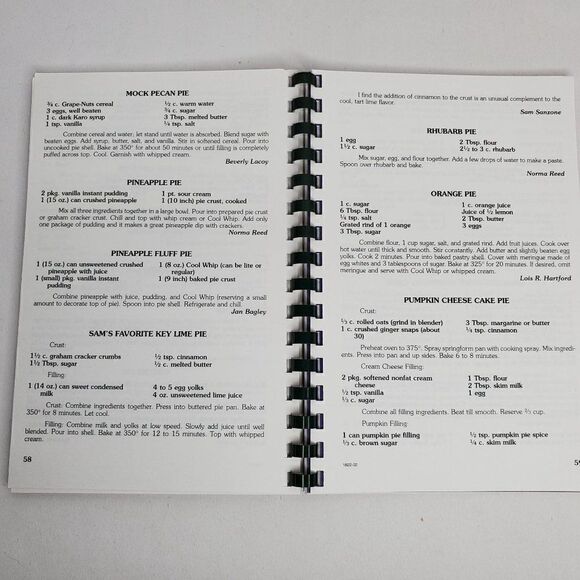 MOCK PECAN PIE
¾ c. Grape-Nuts cereal
½ c. warm water
3 eggs, well beaten
¾ c. sugar
1 c. dark Karo syrup
3 Tbsp. melted butter
1 tsp. vanilla
¼ tsp. salt
Combine cereal and water, let stand until water is absorbed. Blend sugar with
beaten eggs. Add syrup, butter, salt, and vanilla. Stir in softened cereal. Pour into
uncooked pie shell. Bake at 350° for about 50 minutes or until filling is completely
puffed across top. Cool. Garnish with whipped cream.
Beverly Lacoy
PINEAPPLE PIE
2 pkg. vanilla instant pudding
1 pt. sour cream
1 (15 oz.) can crushed pineapple
1 (10 inch) pie crust, cooked
Mix all three ingredients together in a large bowl. Pour into prepared pie crust
or graham cracker crust. Chill and top with whip cream or Cool Whip. Add only
one package of pudding and it makes a great pineapple dip with crackers.
Norma Reed
PINEAPPLE FLUFF PIE
1 (15 oz.) can unsweetened crushed
pineapple with juice
1 (8 oz.) Cool Whip (can be lite or
regular)
1 (small) pkg. vanilla instant
pudding
1 (9 inch) baked pie crust
Combine pineapple with juice, pudding, and Cool Whip (reserving a small
amount to decorate top of pie). Spoon into pie shell. Refrigerate and chill.
Jan Bagley
SAM'S FAVORITE KEY LIME PIE
Crust:
1½ c. graham cracker crumbs
½ tsp. cinnamon
1½ Tbsp. sugar
½ c. melted butter
Filling:
1 (14 oz.) can sweet condensed
milk
4 to 5 egg yolks
4 oz. unsweetened lime juice
Crust: Combine ingredients together. Press into buttered pie pan. Bake at
350° for 8 minutes. Let cool.
Filling: Combine milk and yolks at low speed. Slowly add juice until well
blended. Pour into shell. Bake at 350° for 12 to 15 minutes. Top with whipped
cream.
58
I find the addition of cinnamon to the crust is an unusual complement to the
cool, tart lime flavor.
Sam Sanzone
RHUBARB PIE
1 egg
2 Tbsp. flour
1½ c. sugar
2½ to 3 c. rhubarb
Mix sugar, egg, and flour together. Add a few drops of water to make a paste.
Spoon over rhubarb and bake.
Norma Reed
ORANGE PIE
1 c. sugar
1 c. orange juice
6 Tbsp. flour
Juice of ½ lemon
¼ tsp. salt
2 Tbsp. butter
Grated rind of 1 orange
3 eggs
3 Tbsp. sugar
Combine flour, 1 cup sugar, salt, and grated rind. Add fruit juices. Cook over
hot water until thick and smooth. Stir constantly. Add butter and slightly beaten egg
yolks. Cook 2 minutes. Pour into baked pastry shell. Cover with meringue made of
egg whites and 3 tablespoons of sugar. Bake at 325° for 20 minutes. If desired, omit
meringue and serve with Cool Whip or whipped cream.
Lois R. Hartford
PUMPKIN CHEESE CAKE PIE
Crust:
⅓ c. rolled oats (grind in blender)
3 Tbsp. margarine or butter
1 c. crushed ginger snaps (about
30)
¼ tsp. cinnamon
Preheat oven to 375°. Spray springform pan with cooking spray. Mix ingredi-
ents. Press into pan and up sides. Bake 6 to 8 minutes.
Cream Cheese Filling:
2 pkg. softened nonfat cream
cheese
1 Tbsp. flour
2 Tbsp. skim milk
½ tsp. vanilla
1 egg
⅓ c. sugar
Combine all filling ingredients. Beat till smooth. Reserve ⅔ cup.
Pumpkin Filling:
1 can pumpkin pie filling
½ tsp. pumpkin pie spice
⅓ c. brown sugar
¼ c. skim milk
1822-02